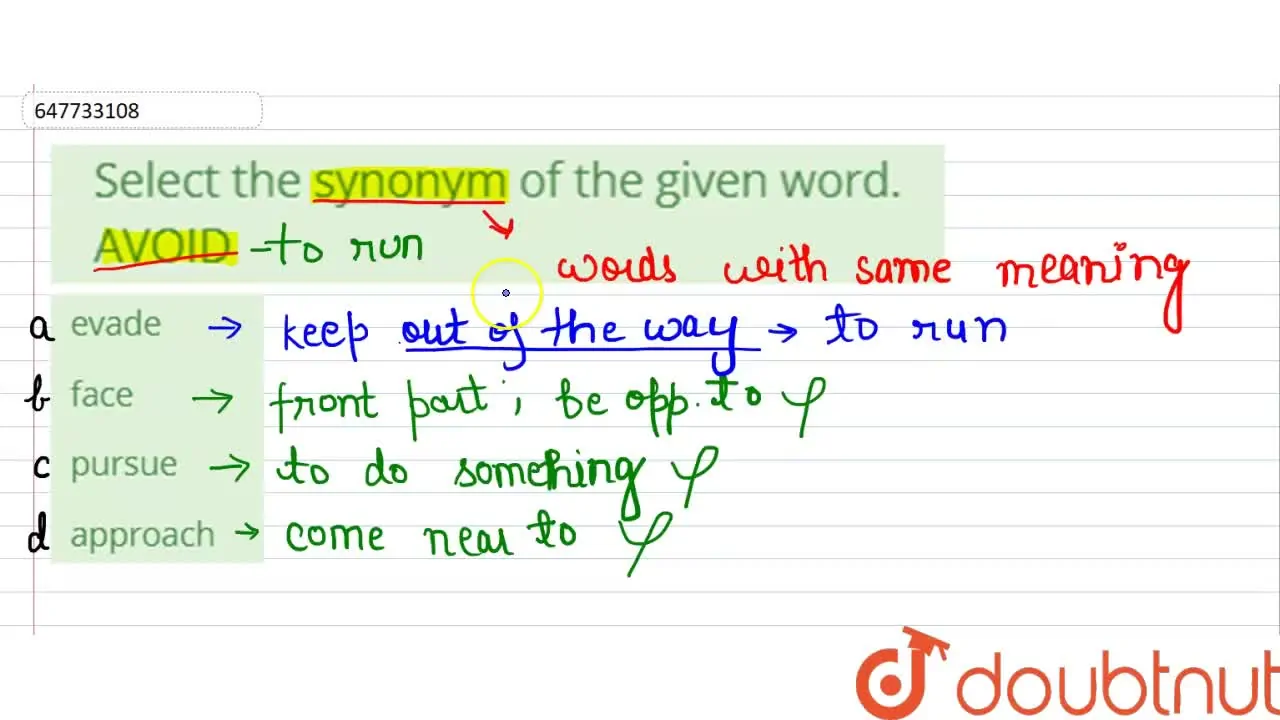 647733108
Select the synonym of the given word.
AVOID - to run
words with same meaning
a evade → keep out of the way → to run
b face → front part ; be opp. to
c pursue → to do something
d approach → come near to
doubtnut